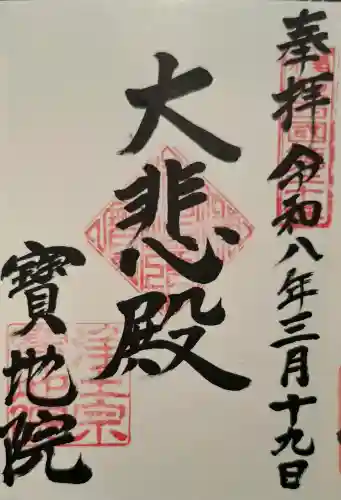 奉拝 令和八年三月十九日
大悲殿
寶地院
浄土宗